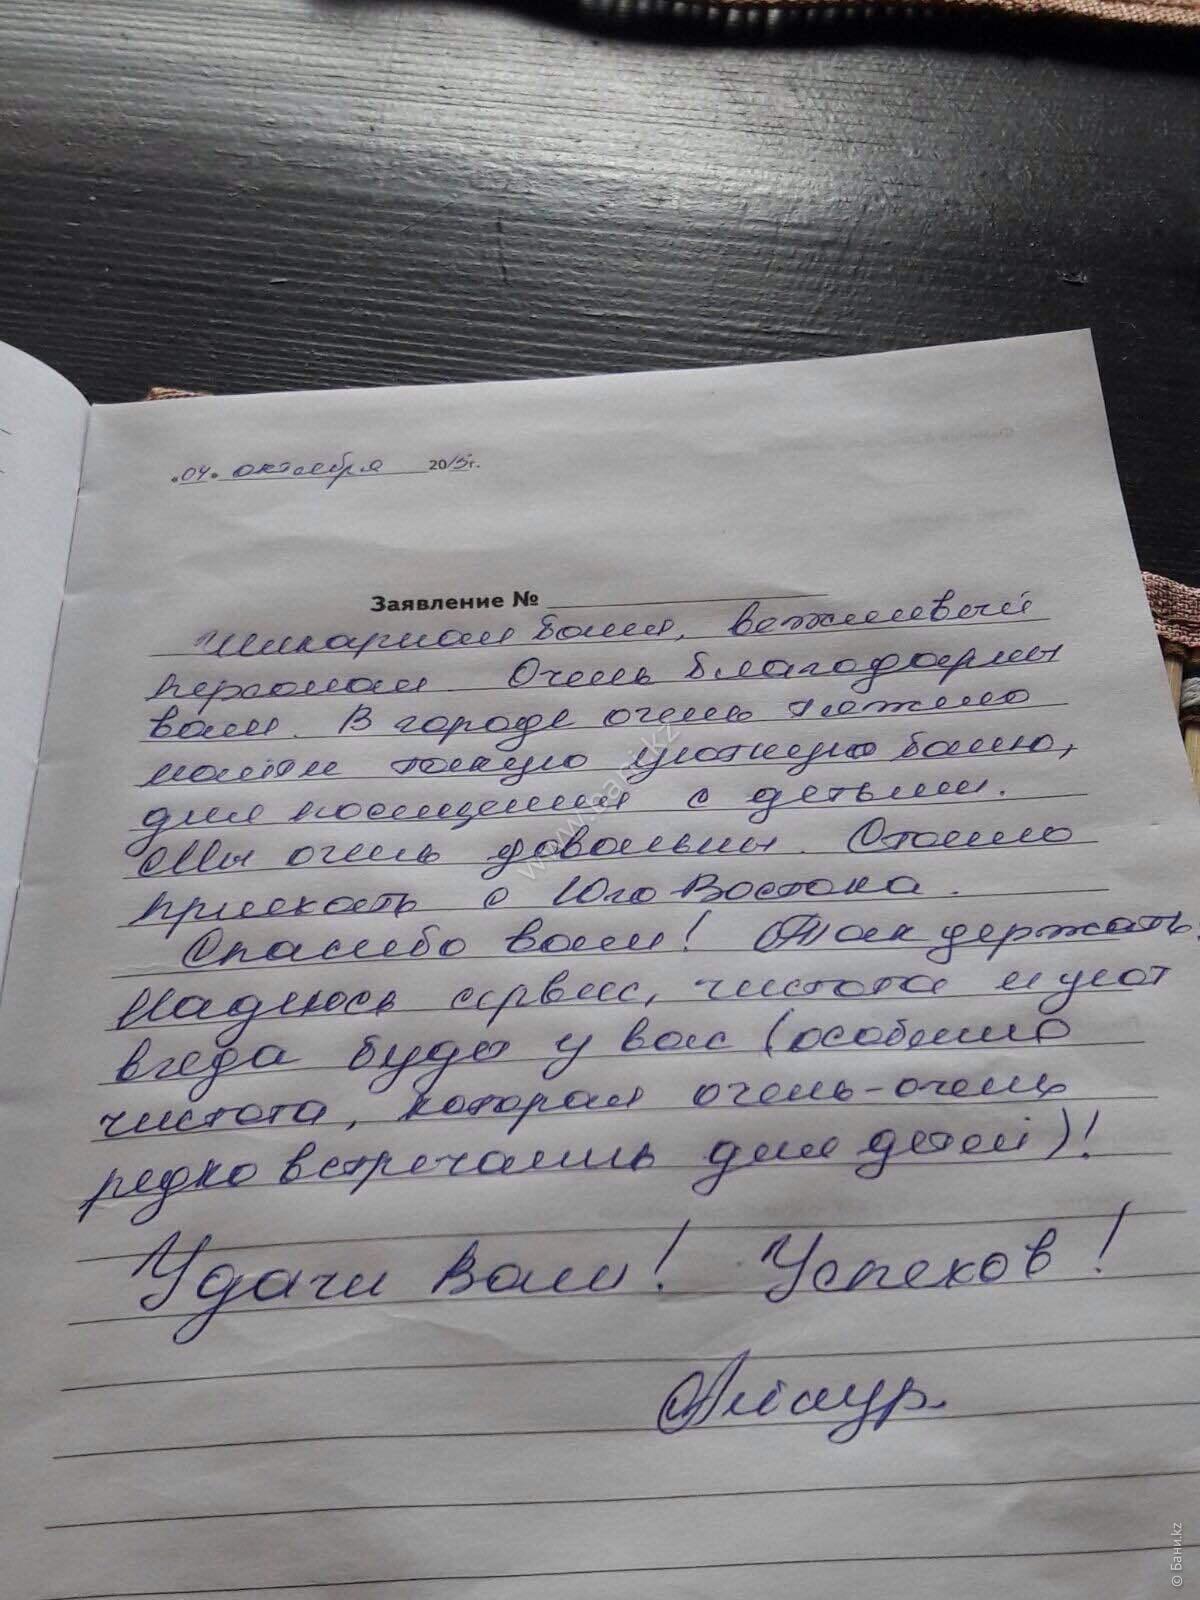 «04» октября 2015г.
Заявление №
Шикарная баня, вежливый
персонал. Очень благодарны
вам. В городе очень сложно
найти такую уютную баню,
для посещения с детьми.
Мы очень довольны. Стоило
приехать с Юго Востока.
Спасибо вам! Так держать.
Надеюсь сервис, чистота и уют
всегда будет у вас (особенно
чистота, которая очень-очень
редко встречались для детей)!
Удачи Вам! Успехов!
www.bani.kz
© Бани.kz